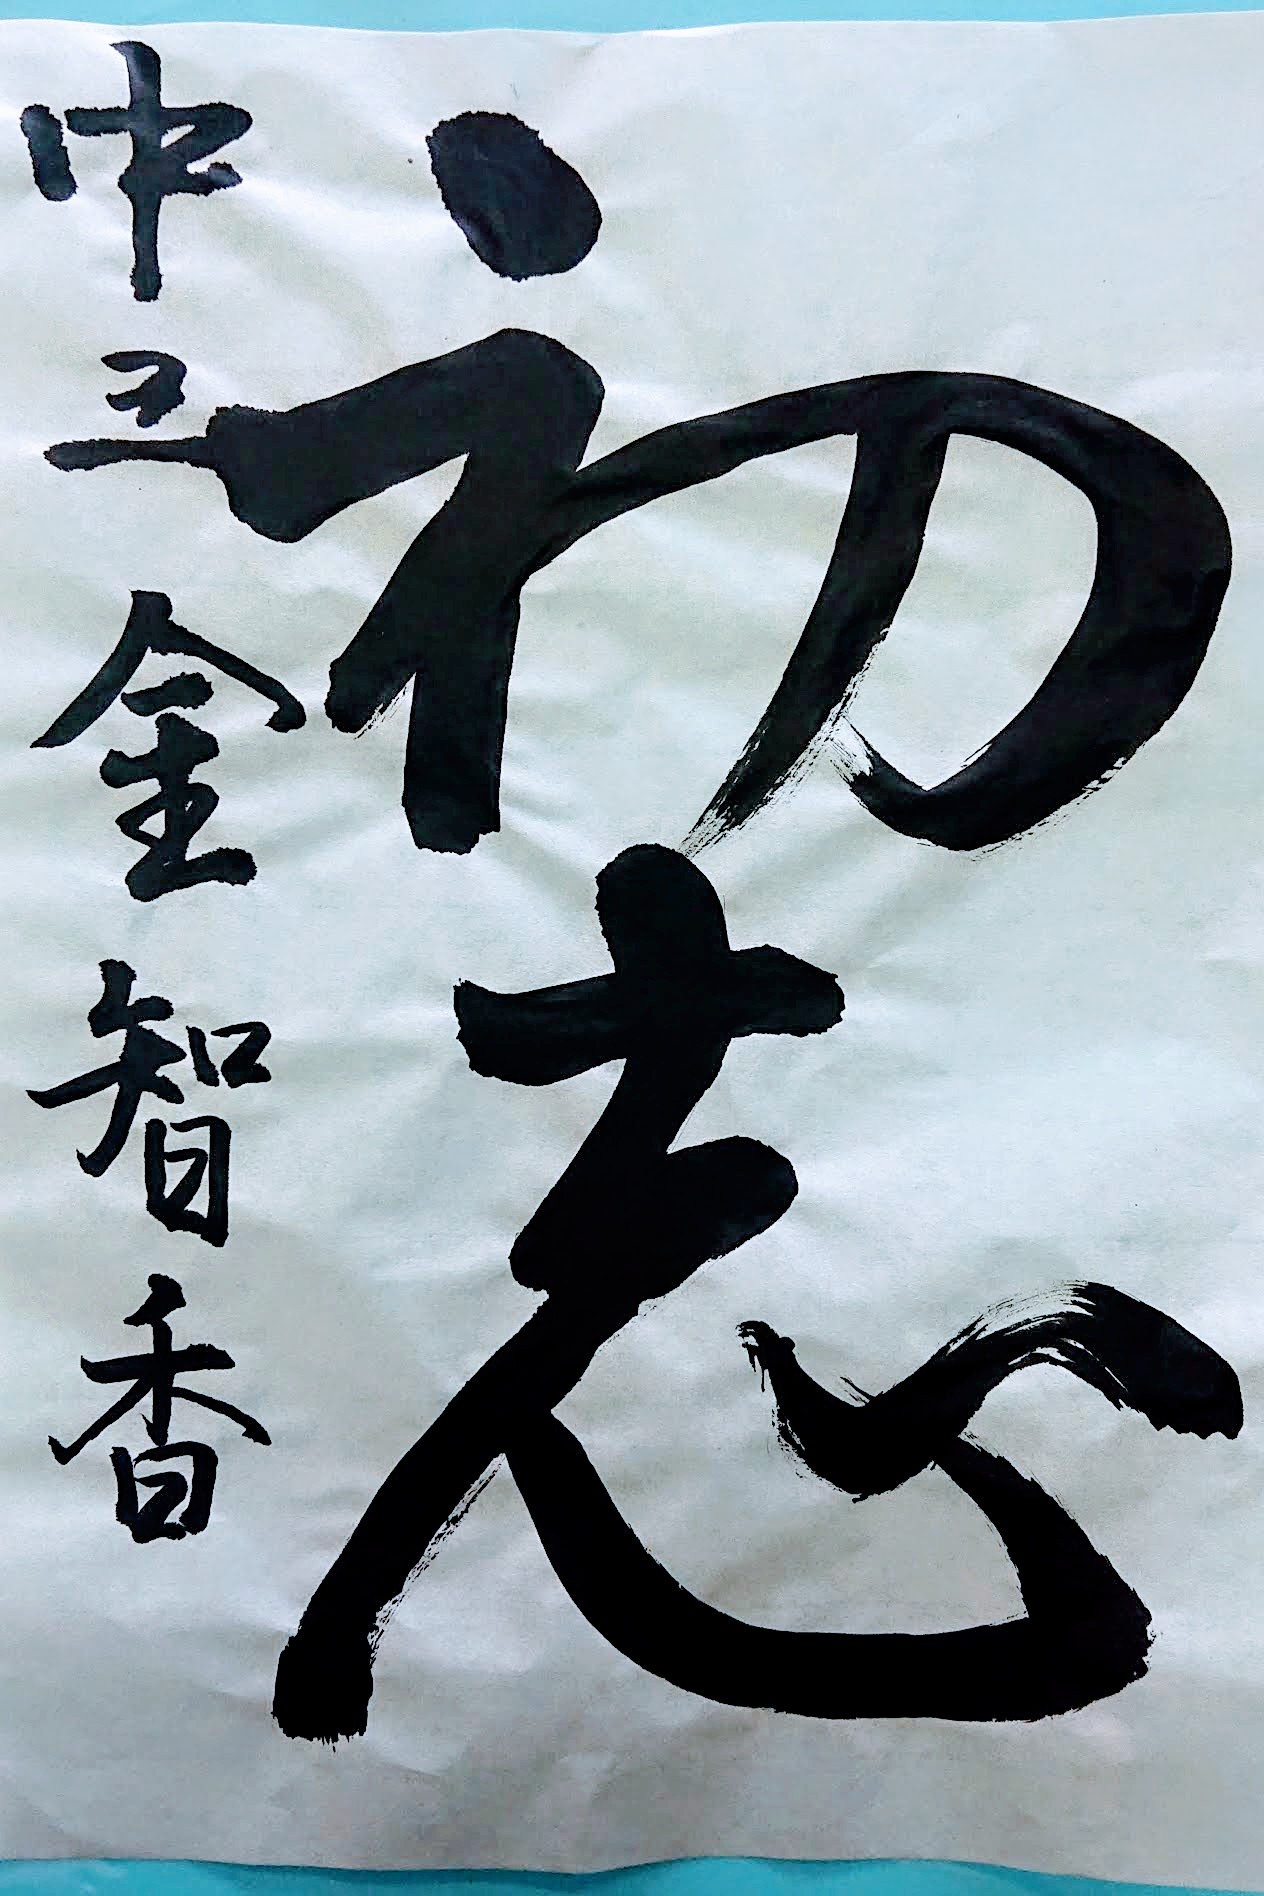 初志
中三 金智香